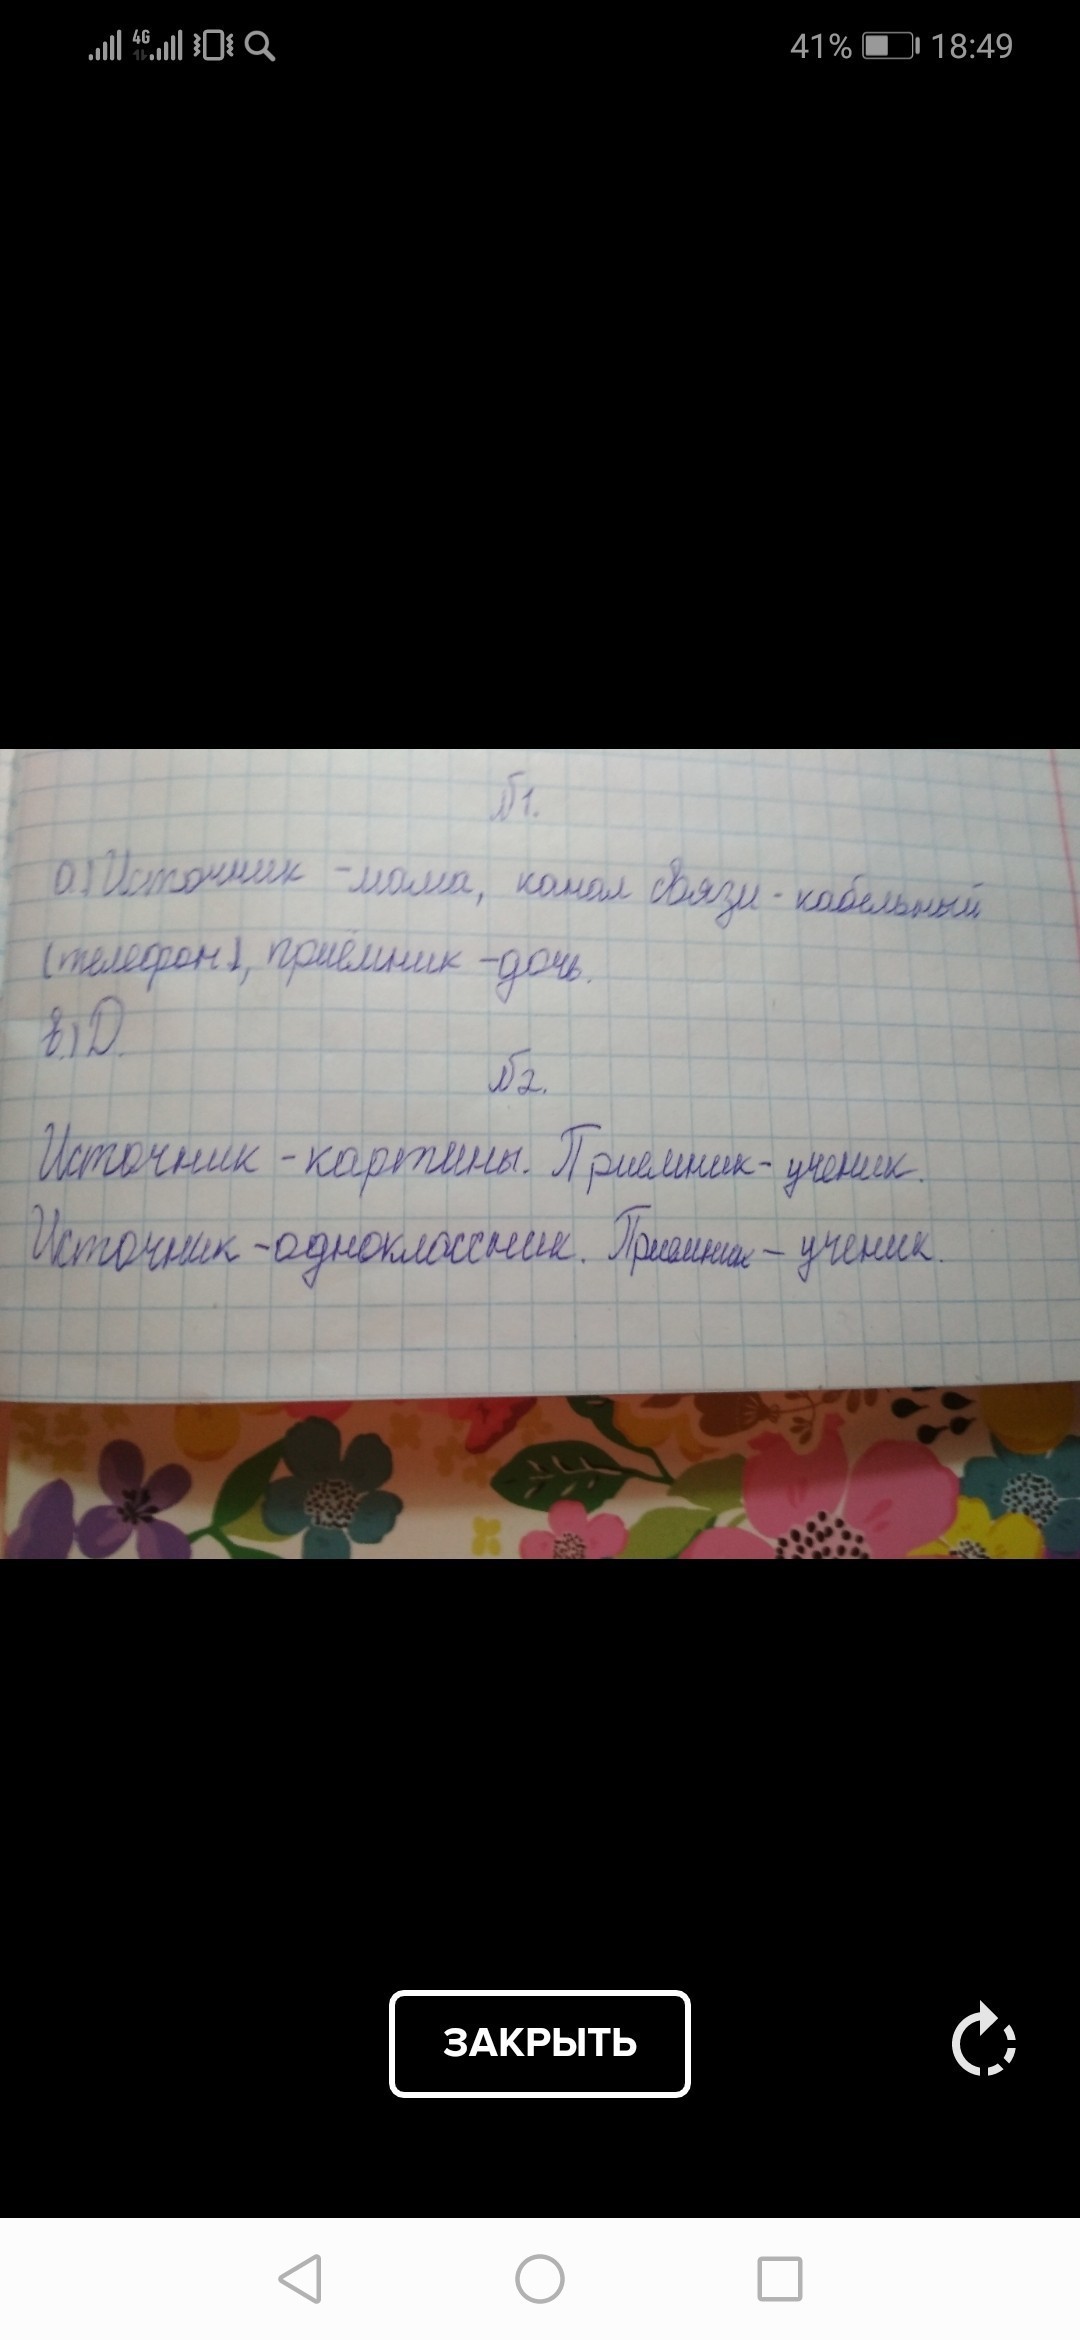 4G
41% 18:49
№1.
а.) Источник - мама, канал связи - кабельный
(телефон), приёмник - дочь.
в.) D.
№2.
Источник - картины. Приемник - ученик.
Источник - одноклассник. Приемник - ученик.
ЗАКРЫТЬ